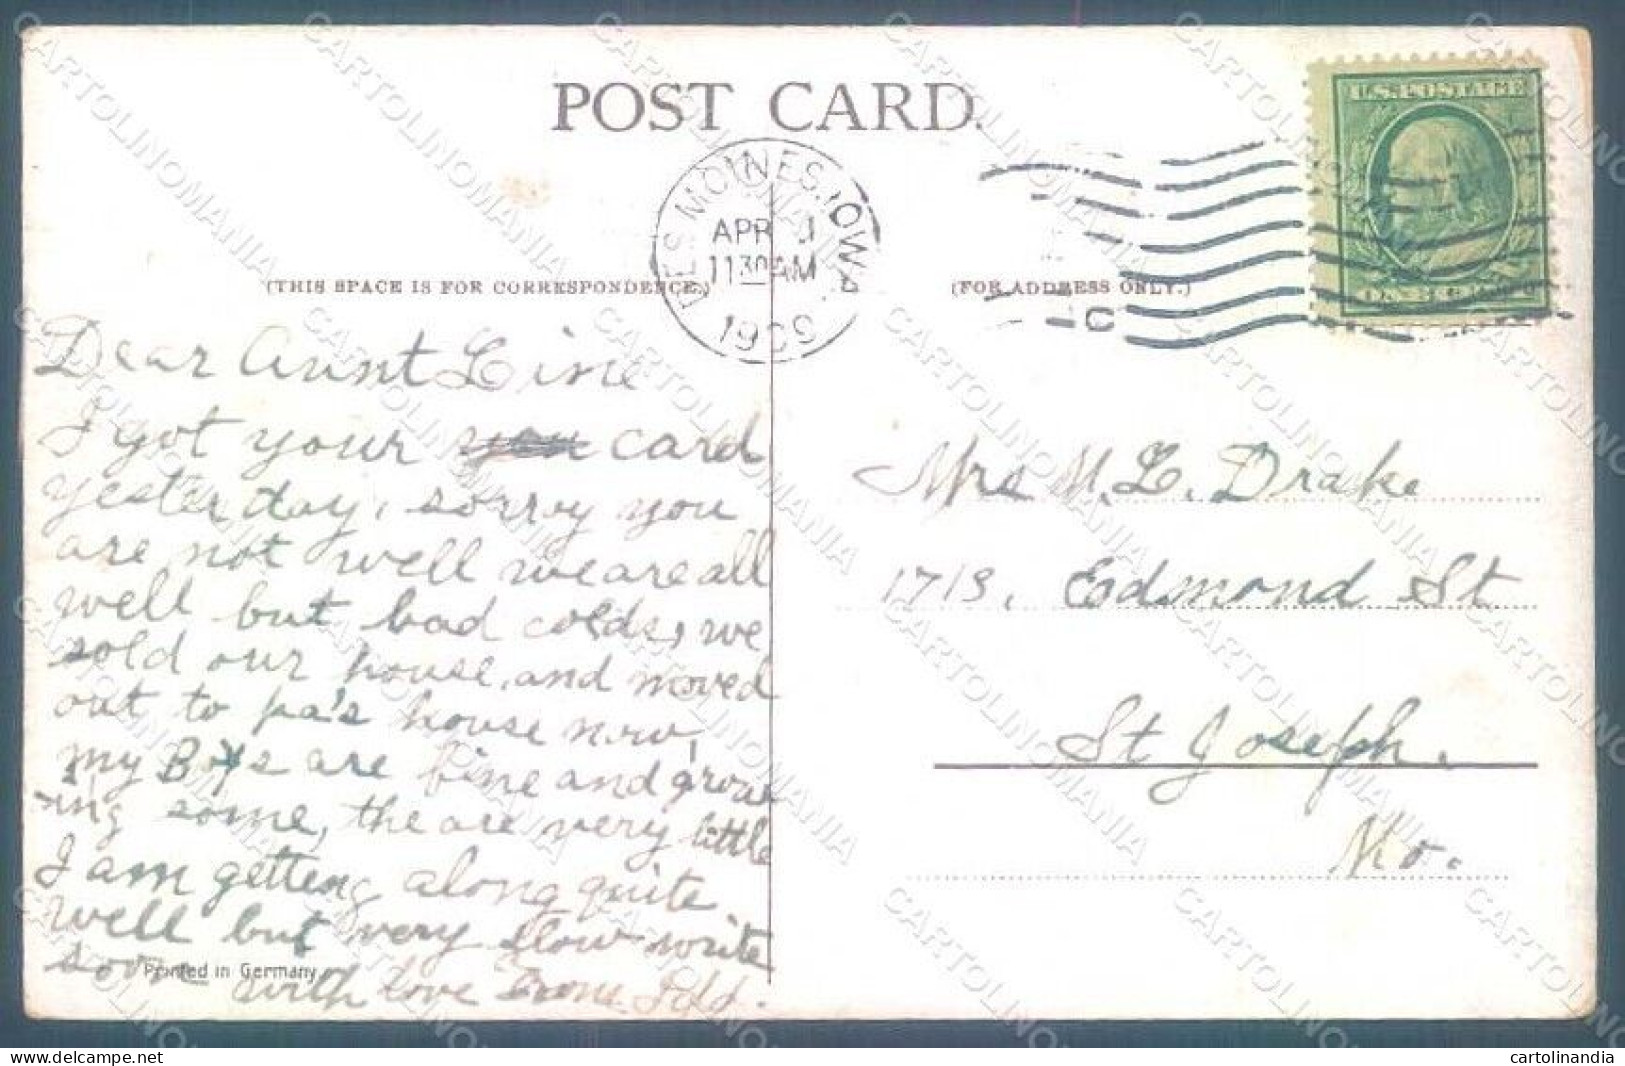 POST CARD.
U.S. POSTAGE
DES MOINES, IOWA
APR 1
1130 AM
1909
(THIS SPACE IS FOR CORRESPONDENCE.)
(FOR ADDRESS ONLY.)
Dear Aunt Line
I got your you card
yesterday, sorry you
are not well we are all
well but bad colds, we
sold our house, and moved
out to pa's house now,
my Boys are fine and grow
-ing some, the are very little
I am getting along quite
well but very slow write
soon with love From
Printed in Germany
Mrs M. L. Drake
1713, Edmond St
St Joseph.
Mo.
CARTOLINOMANIA
cartolinandia